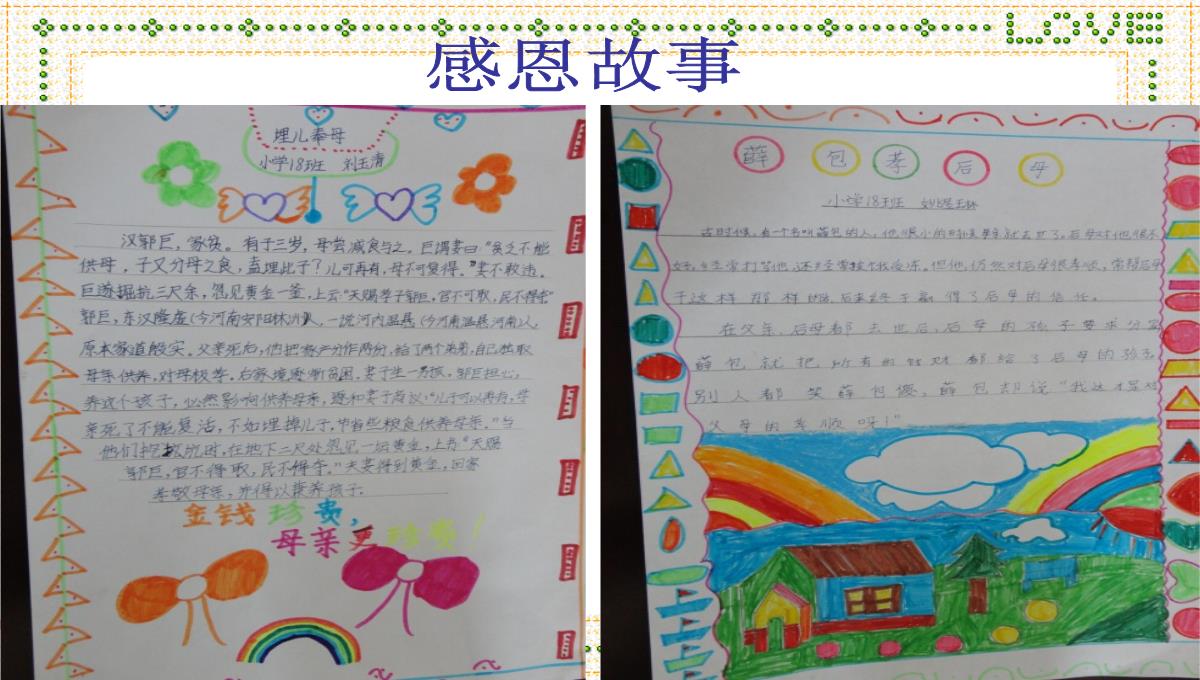 LOVE
感恩故事
埋儿奉母
小学18班 刘玉清
汉郭巨，家贫。有子三岁，母尝减食与之。巨谓妻曰："贫乏不能
供母，子又分母之食，盍埋此子？儿可再有，母不可复得。"妻不敢违。
巨遂掘坑三尺余，忽见黄金一釜，上云："天赐孝子郭巨，官不可取，民不得夺"
郭巨，东汉隆虑（今河南安阳林州）人，一说河内温县（今河南温县河南）人，
原本家道殷实。父亲死后，他把家产分作两份，给了两个弟弟，自己独取
母亲供养，对母极孝。后家境逐渐贫困，妻子生一男孩，郭巨担心，
养这个孩子，必然影响供养母亲，遂和妻子商议："儿子可以再有，母
亲死了不能复活，不如埋掉儿子，节省些粮食供养母亲。"当
他们挖坑时，在地下二尺处忽见一坛黄金，上书"天赐
郭巨，官不得取，民不得夺。"夫妻得到黄金，回家
孝敬母亲，并得以兼养孩子。
金钱珍贵，
母亲更珍贵！
薛包孝后母
小学18班
古时候，有一个名叫薛包的人，他很小的时候母亲就去世了。后母对他很不
好，经常打骂他，还经常挨饿受冻。但他仍然对后母很孝顺，常帮后母
干这样那样的活，后来终于赢得了后母的信任。
在父亲、后母都去世后，后母的孩子要求分家
薛包就把所有的钱财都给了后母的孩子
别人都笑薛包傻，薛包却说"我这才是对
父母的孝顺呀！"